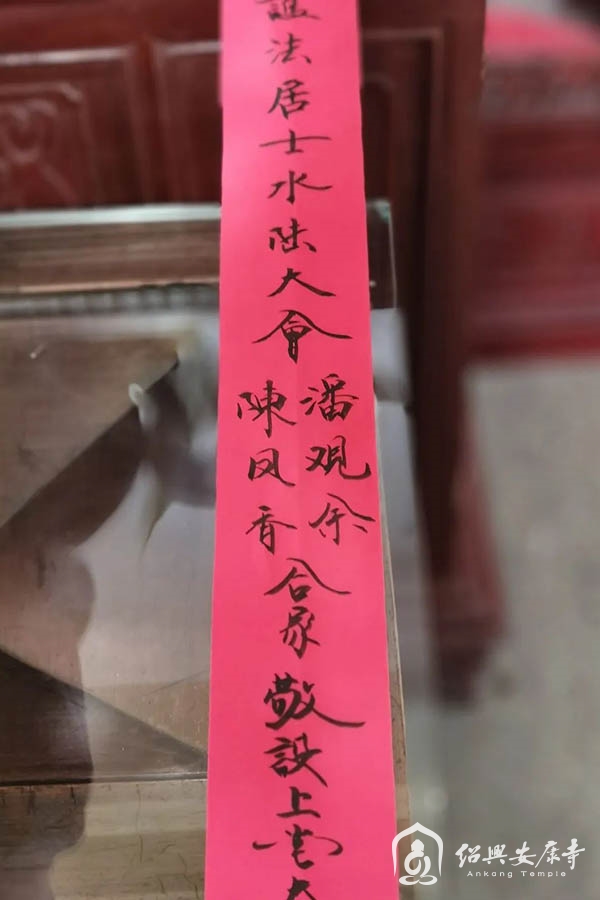 法居士水陆大會
潘观余
陳凤香
合家
敬设上堂大
绍興安康寺
Ankang Temple